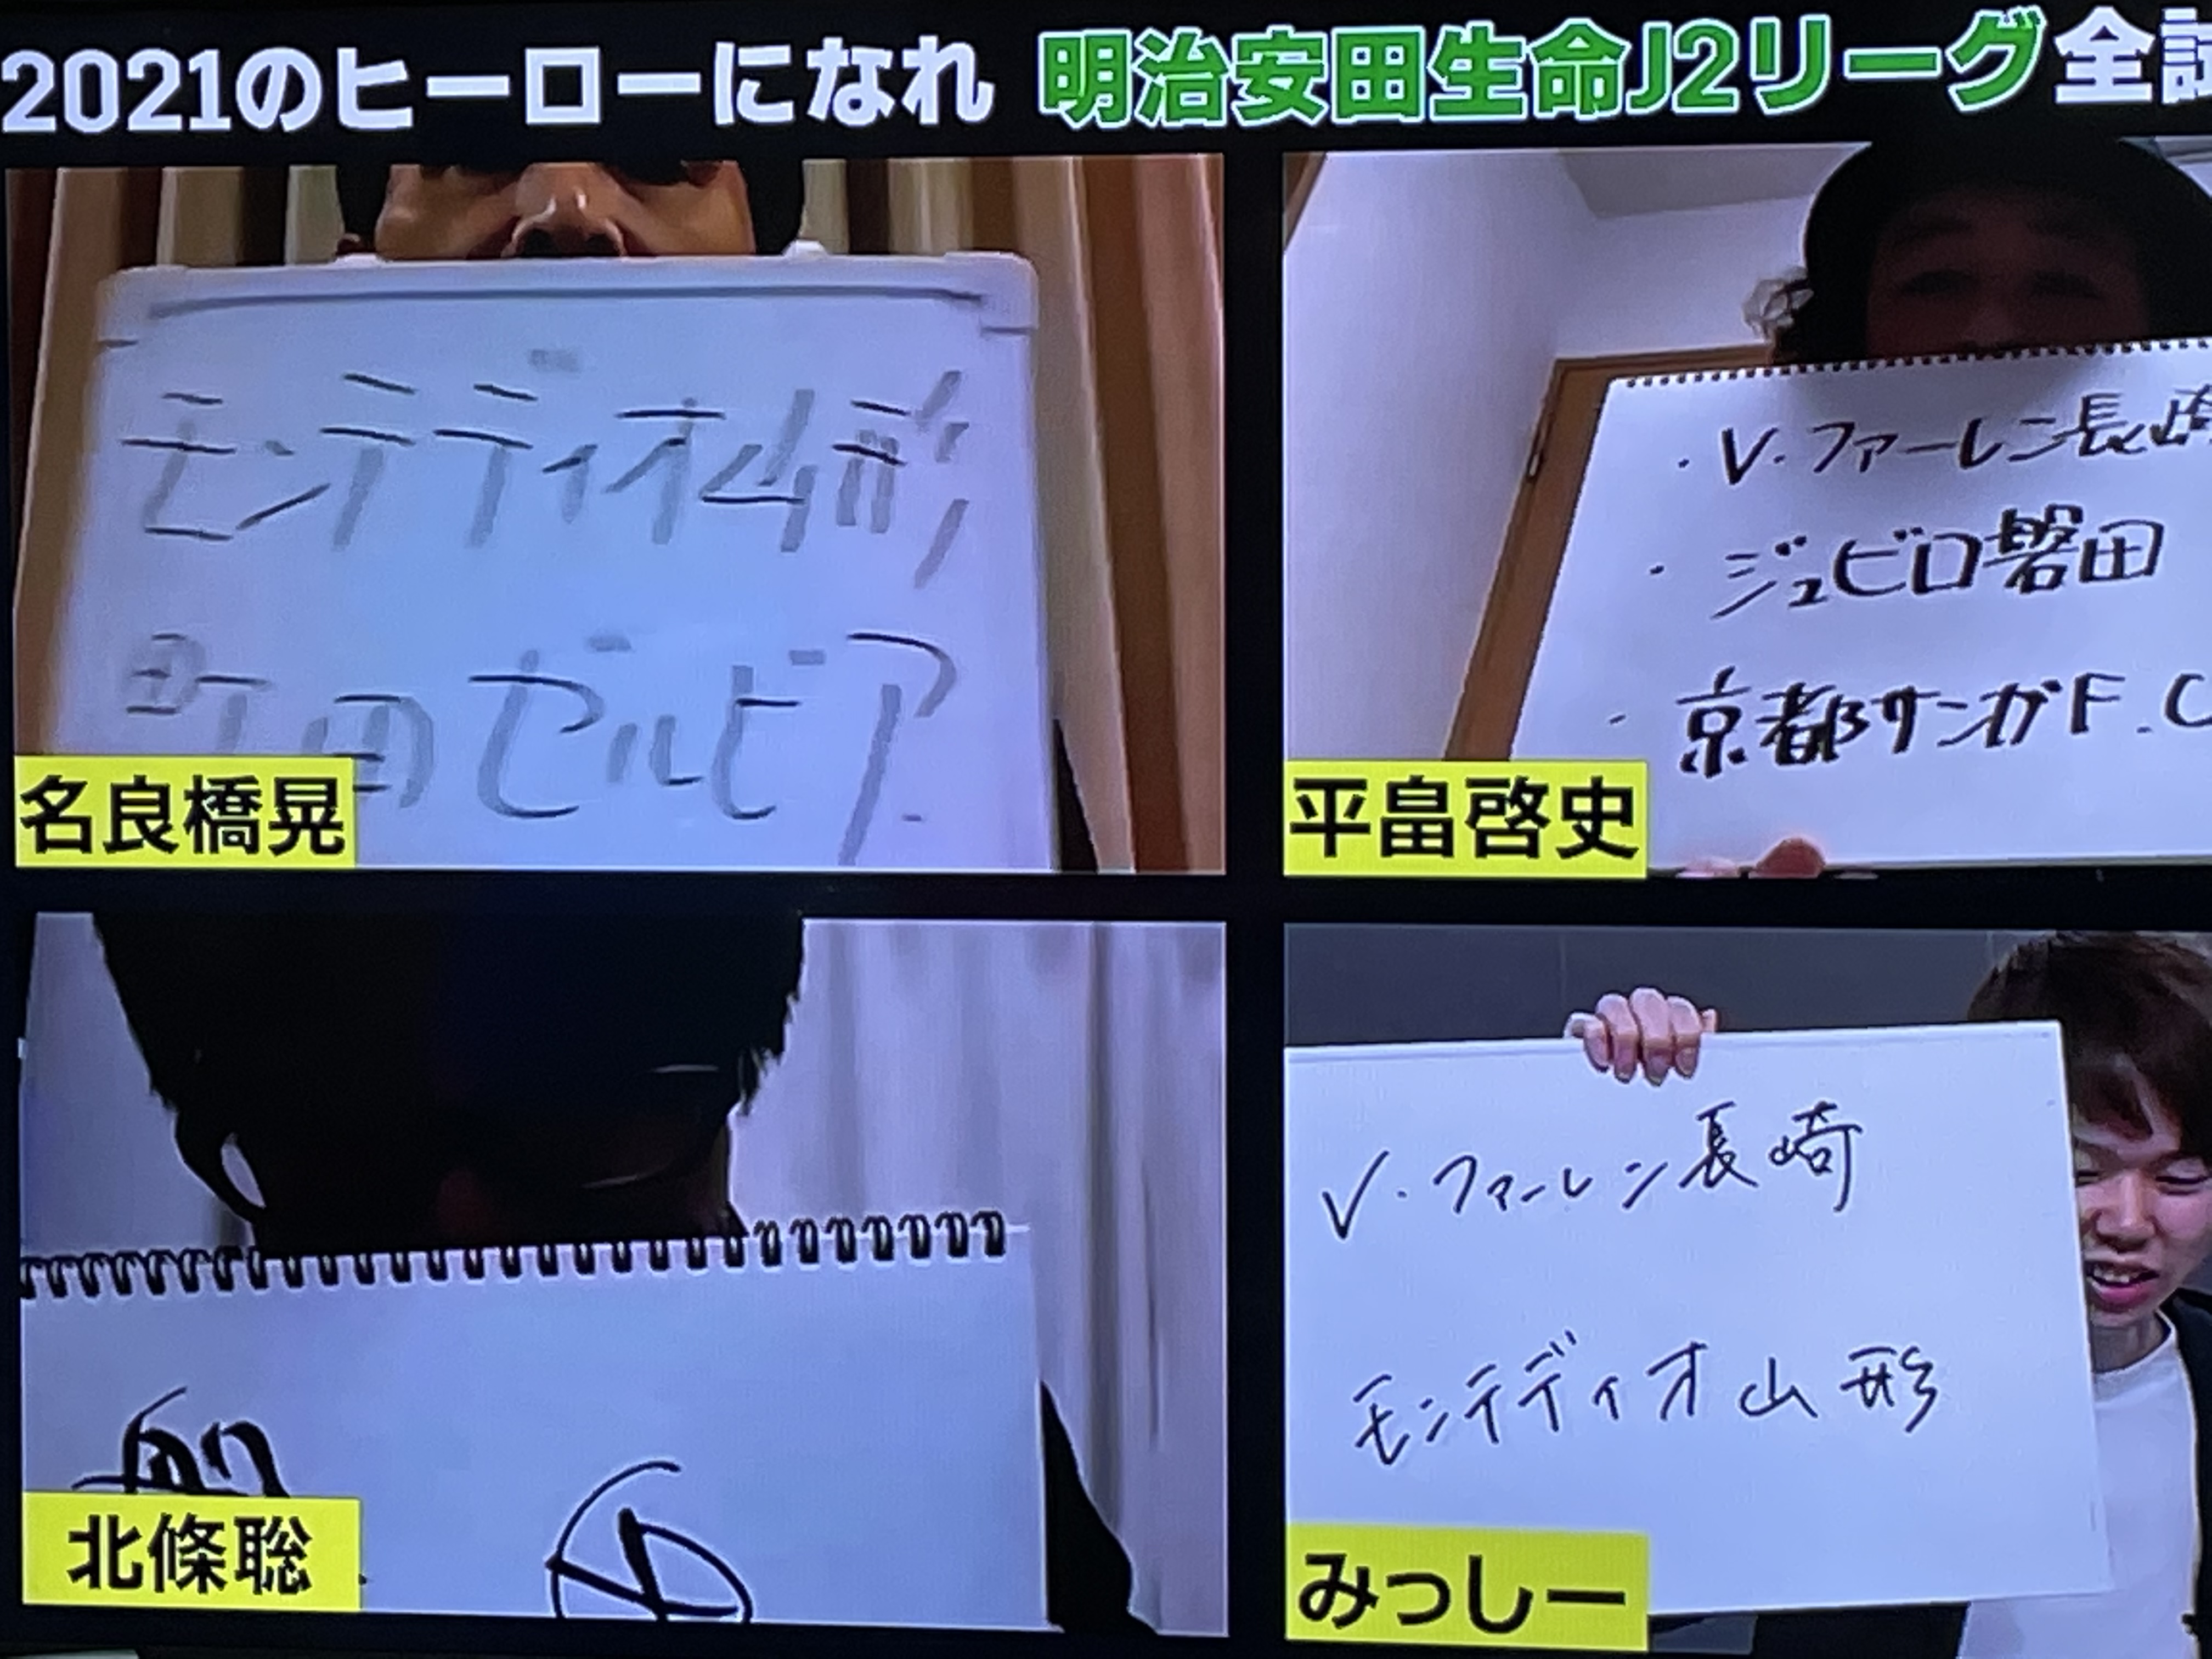 2021のヒーローになれ 明治安田生命J2リーグ全試
モンテディオ山形
町田ゼルビア
名良橋晃
・V・ファーレン長崎
・ジュビロ磐田
・京都サンガF.C
平畠啓史
北條聡
V・ファーレン長崎
モンテディオ山形
みっしー